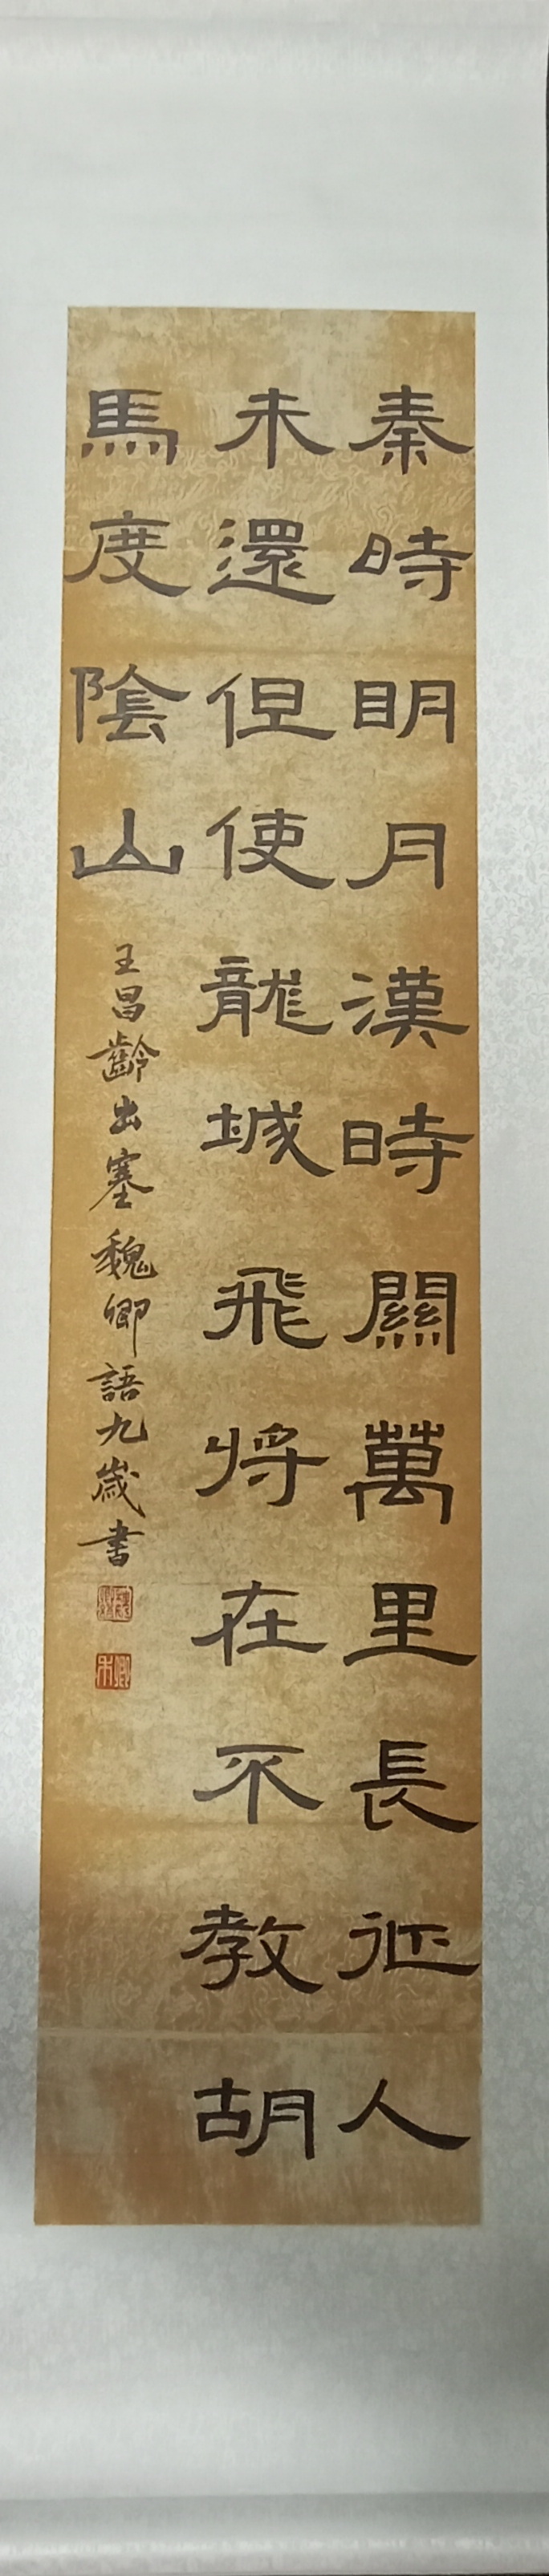 秦時明月漢時關萬里長征人
未還但使龍城飛将在不教胡
馬度陰山
王昌齡出塞魏卿語九歲書